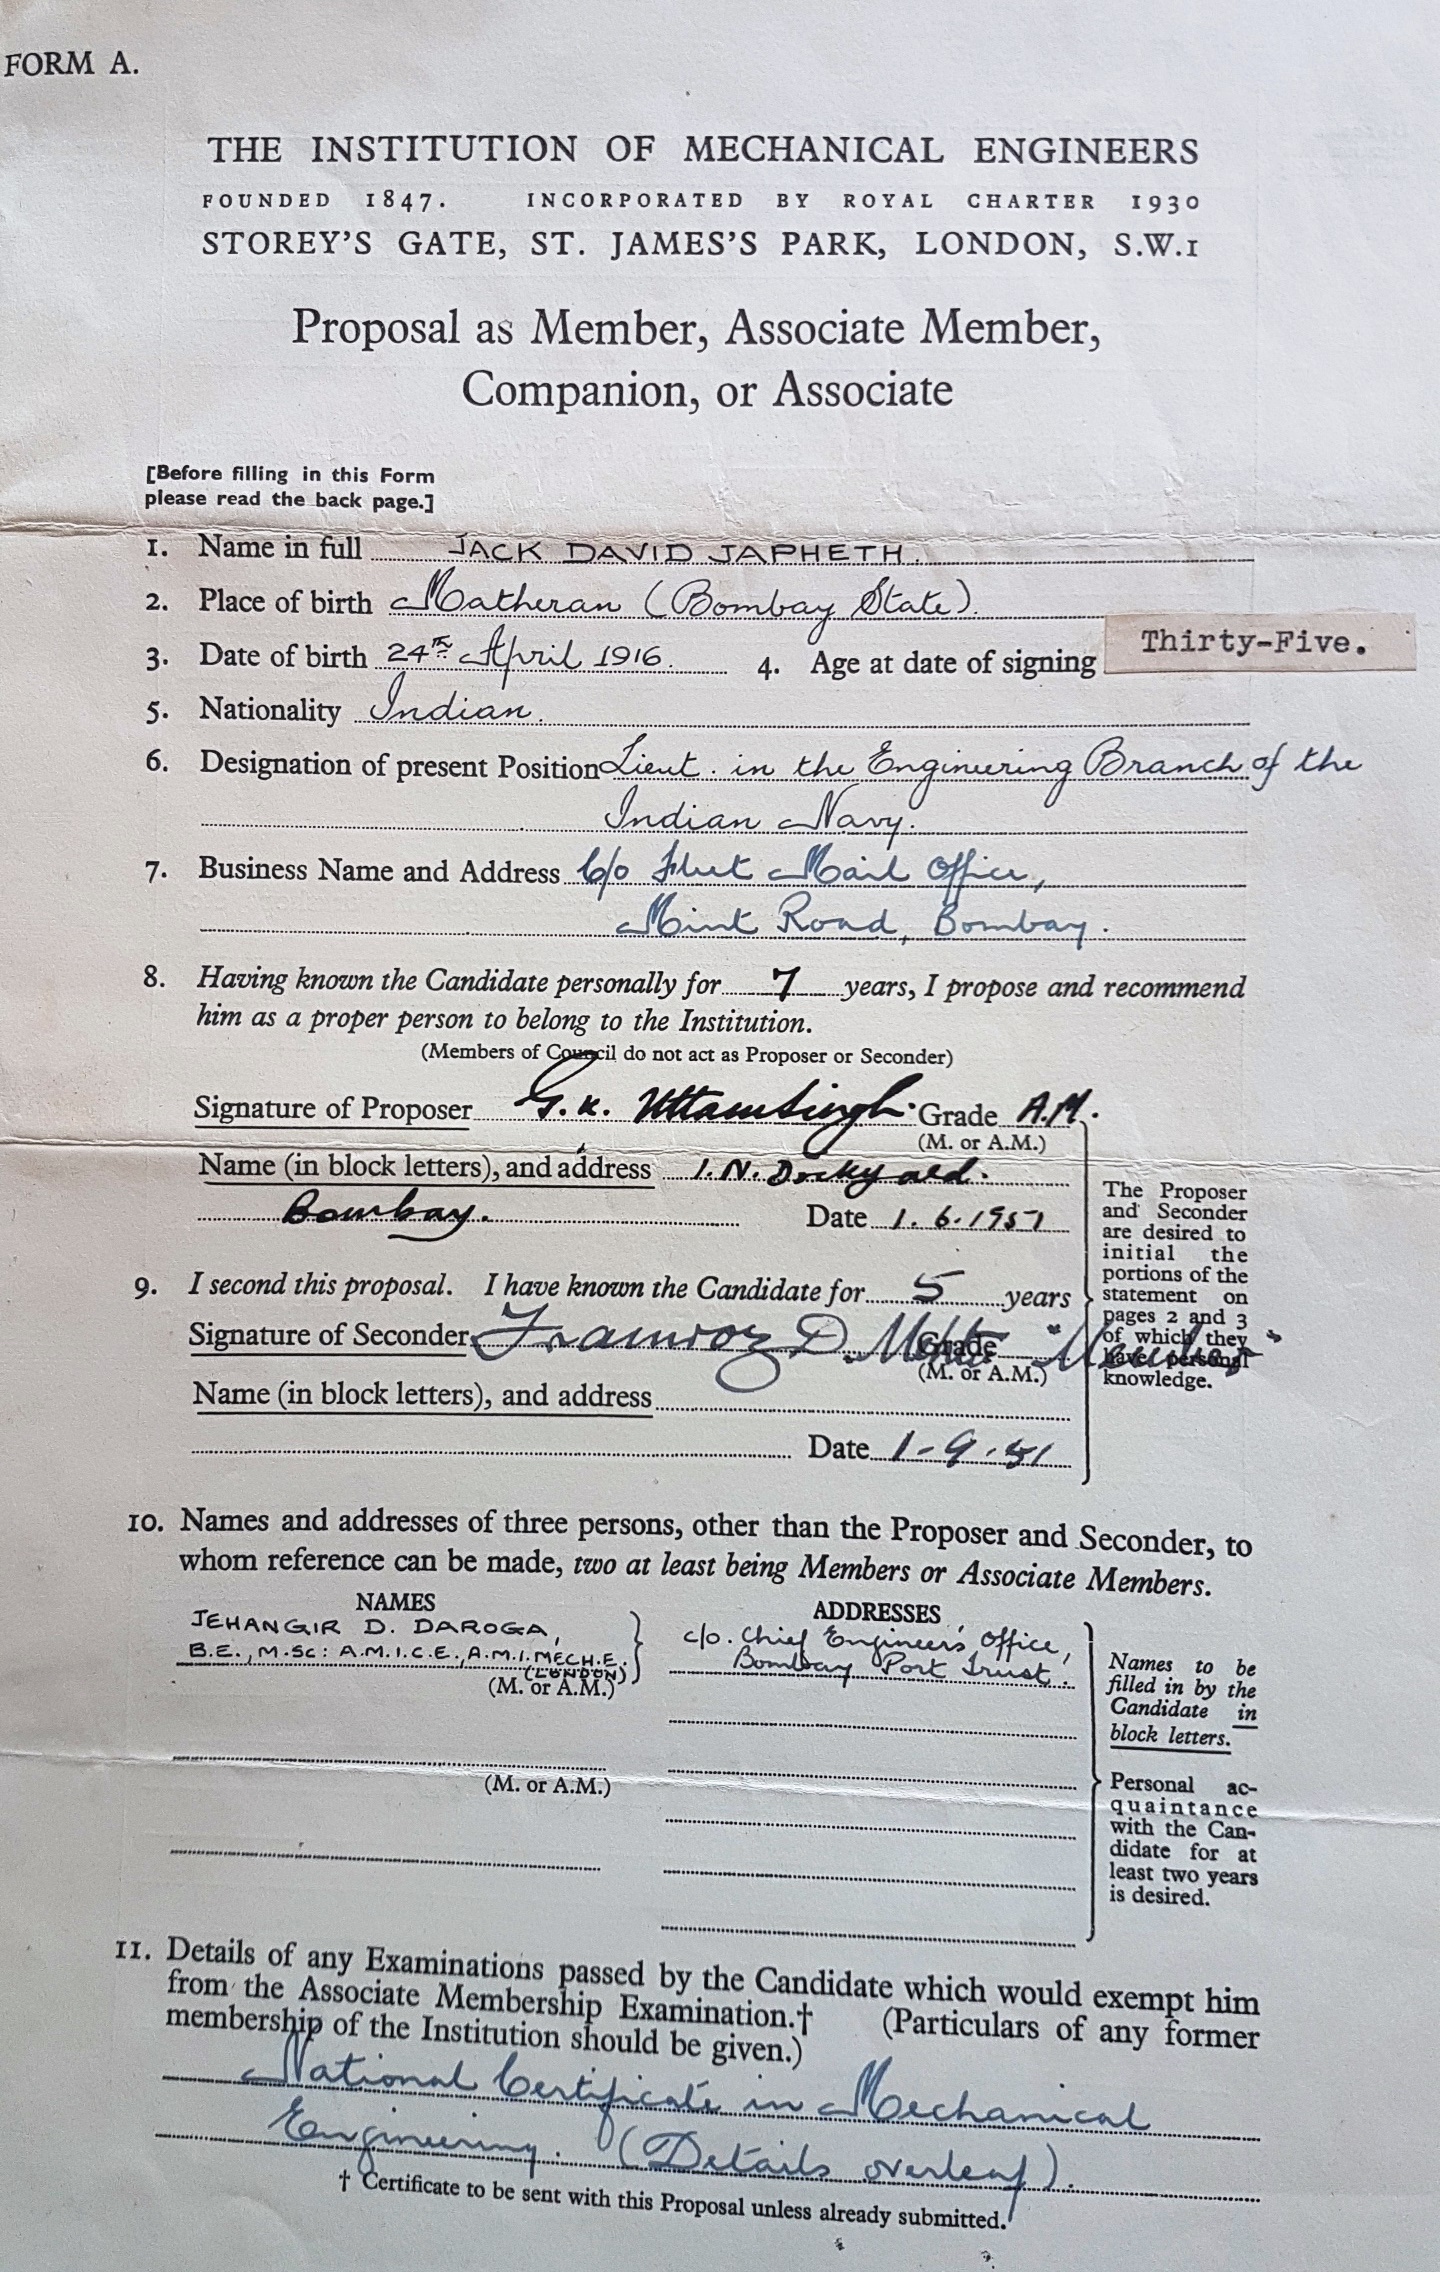 FORM A.
THE INSTITUTION OF MECHANICAL ENGINEERS
FOUNDED 1847. INCORPORATED BY ROYAL CHARTER 1930
STOREY'S GATE, ST. JAMES'S PARK, LONDON, S.W.1
Proposal as Member, Associate Member,
Companion, or Associate
[Before filling in this Form
please read the back page.]
1. Name in full JACK DAVID JAPHETH.
2. Place of birth Matheran (Bombay State).
3. Date of birth 24th April 1916. 4. Age at date of signing Thirty-Five.
5. Nationality Indian.
6. Designation of present Position Lieut. in the Engineering Branch of the
Indian Navy.
7. Business Name and Address C/o Fleet Mail Office,
Mint Road, Bombay.
8. Having known the Candidate personally for 7 years, I propose and recommend
him as a proper person to belong to the Institution.
(Members of Council do not act as Proposer or Seconder)
Signature of Proposer G.K. Uttamsingh. Grade A.M.
(M. or A.M.)
Name (in block letters), and address I.N. Dockyard.
Bombay. Date 1.6.1951
The Proposer
and Seconder
are desired to
initial the
portions of the
statement on
pages 2 and 3
of which they
have personal
knowledge.
9. I second this proposal. I have known the Candidate for 5 years
Signature of Seconder Framroz D. Mehta Grade "Member"
(M. or A.M.)
Name (in block letters), and address
Date 1-9-51
10. Names and addresses of three persons, other than the Proposer and Seconder, to
whom reference can be made, two at least being Members or Associate Members.
NAMES ADDRESSES
JEHANGIR D. DAROGA, c/o. Chief Engineer's Office,
B.E., M.Sc: A.M.I.C.E., A.M.I.MECH.E. Bombay Port Trust.
(LONDON)
(M. or A.M.)
(M. or A.M.)
Names to be
filled in by the
Candidate in
block letters.
Personal ac-
quaintance
with the Can-
didate for at
least two years
is desired.
11. Details of any Examinations passed by the Candidate which would exempt him
from the Associate Membership Examination.† (Particulars of any former
membership of the Institution should be given.)
National Certificate in Mechanical
Engineering. (Details overleaf).
† Certificate to be sent with this Proposal unless already submitted.